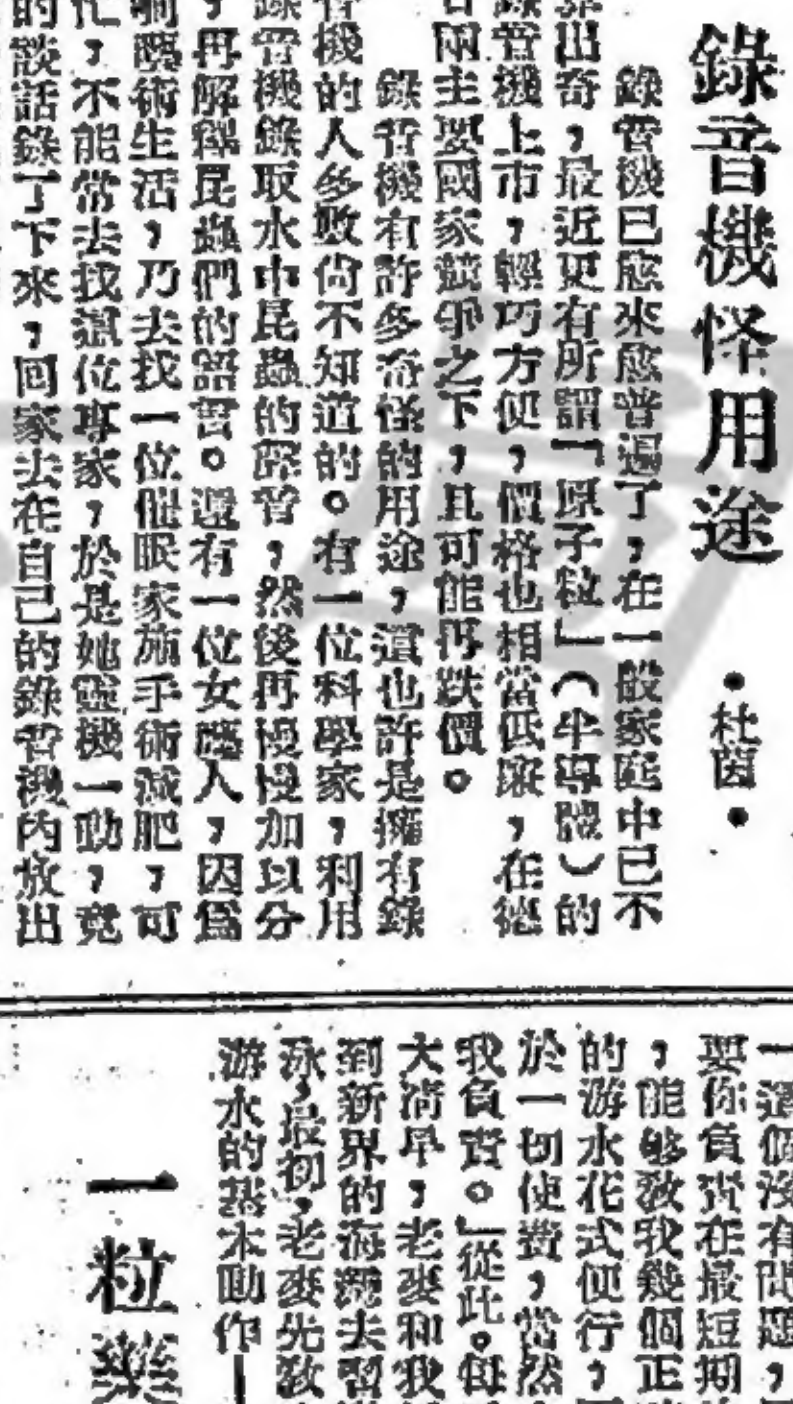 錄音機怪用途
•杜茵•
錄音機已愈來愈普遍了,在一般家庭中已不
出奇,最近更有所謂「原子粒」(半導體)的
錄音機上市,輕巧方便,價格也相當低廉,在
兩主要國家競爭之下,且可能再跌價。
錄音機有許多奇怪的用途,這也許是擁有錄
音機的人多數尚不知道的。有一位科學家,利用
錄音機錄取水中昆蟲的聲音,然後再慢慢加以分
,再解釋昆蟲們的語言。還有一位女藝人,因爲
藝術生活,乃去找一位催眠家施手術減肥,可
忙,不能常去找這位專家,於是她靈機一動,竟
的談話錄了下來,回家去在自己的錄音機內放出
一這個沒有問題,
要你負責在最短期
,能夠教我幾個正
的游水花式便行,
於一切使費,當然
我負責。」從此。每
大清早,老麥和我
到新界的海灘去習
泳,最初,老麥先教
游水的基本動作—
一粒藥